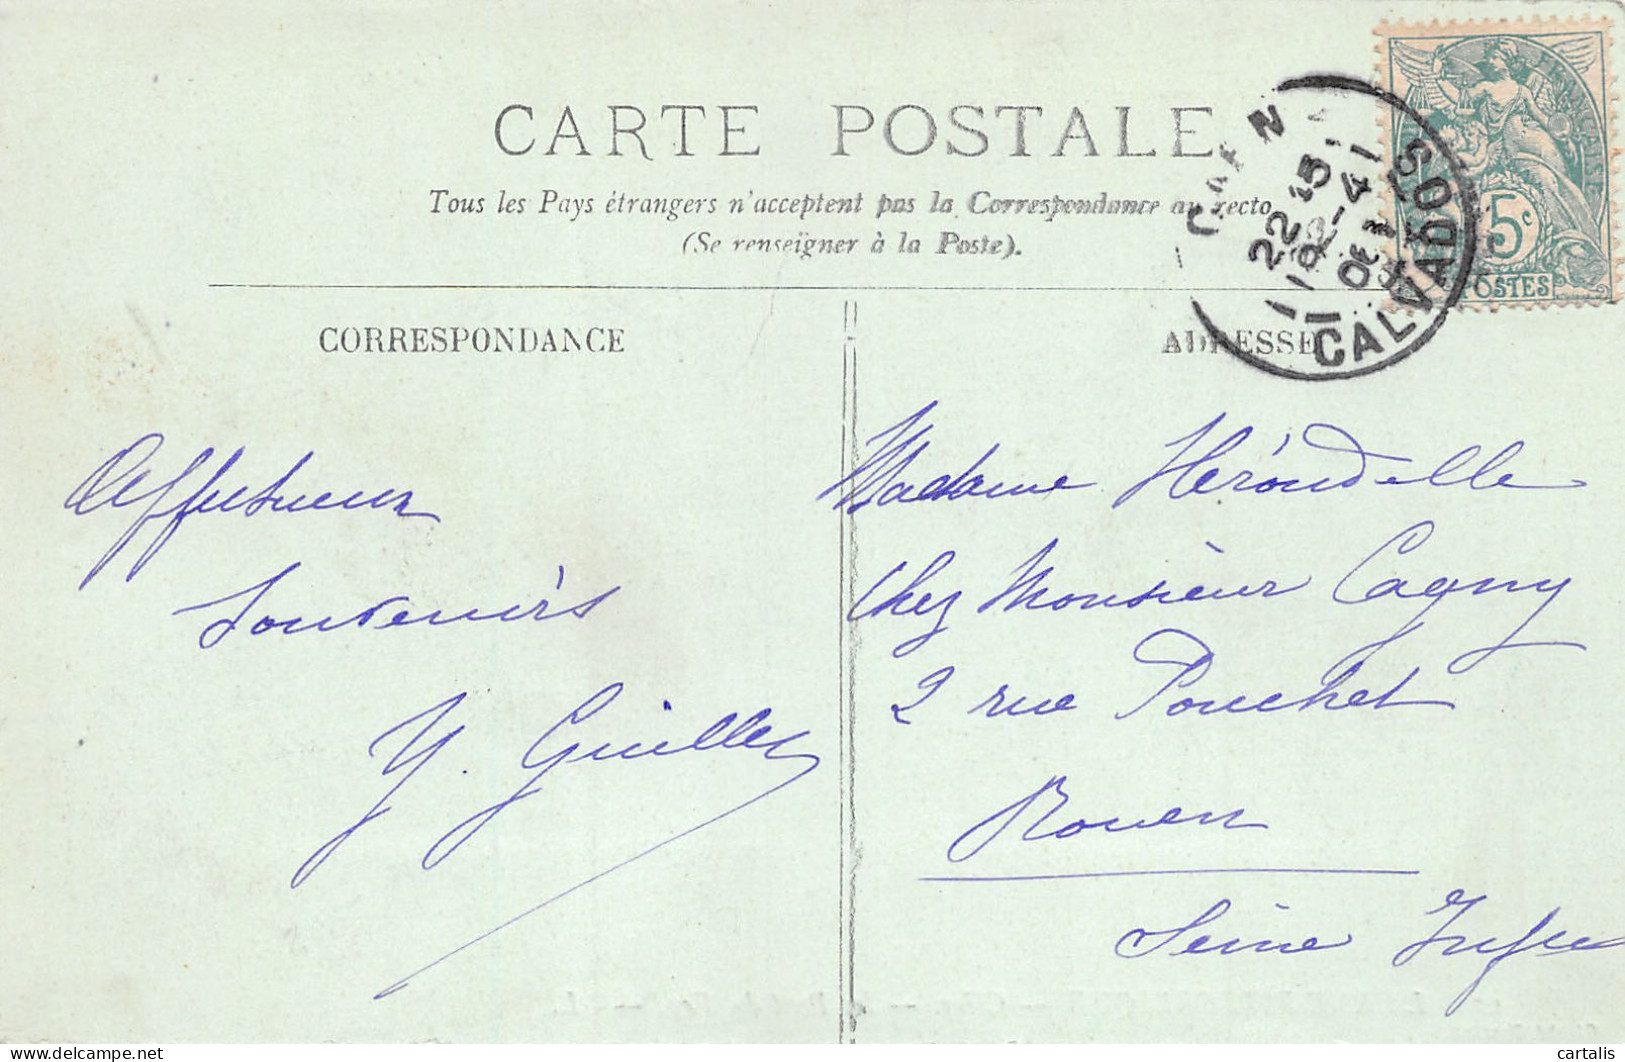 CARTE POSTALE
Tous les Pays étrangers n'acceptent pas la Correspondance au recto
(Se renseigner à la Poste).
CORRESPONDANCE
ADRESSE
CALVADOS
5c
POSTES
Affectueux
Souvenirs
Y. Guilles
Madame Hérondelle
Chez Monsieur Cagny
2 rue Pouchet
Rouen
Seine Infre
delcampe.net
cartalis